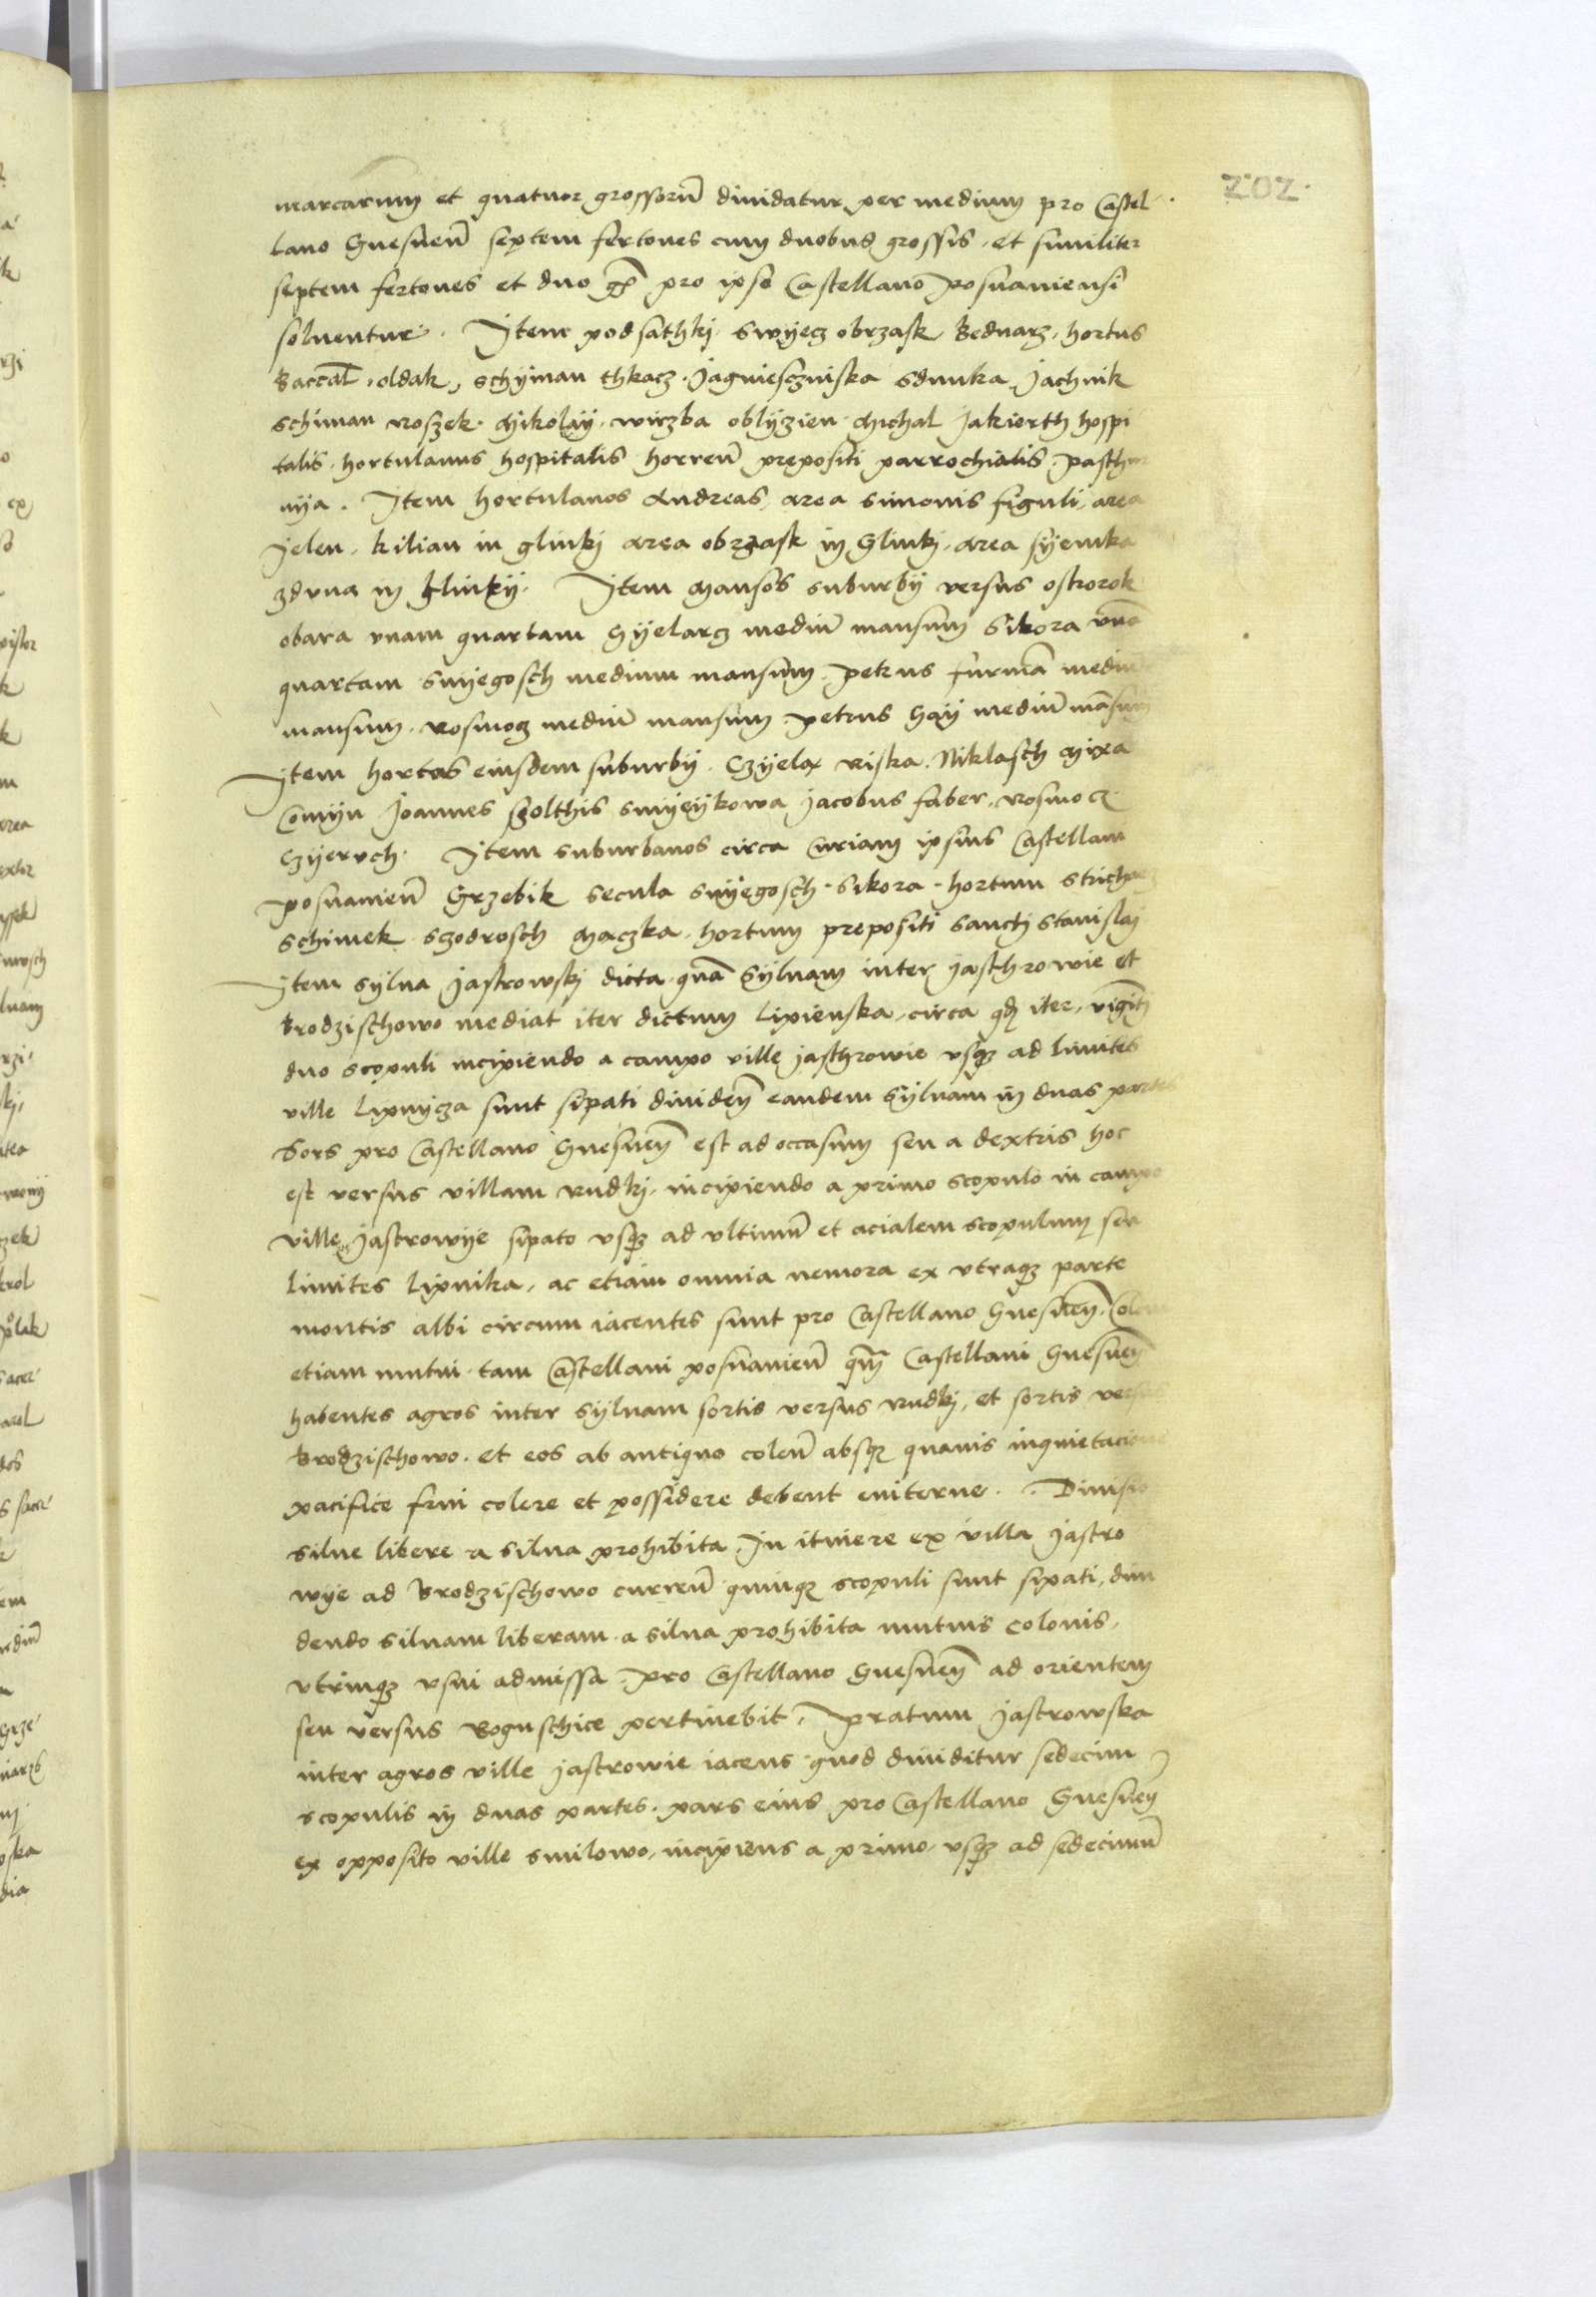 202.
marcarum et quatuor grossorū diuidatur per medium pro Castel
lano Gnesnen̄ septem fertones cum duobus grossis, et similiter
septem fertones et duo gr̄ pro ipso Castellano Posnaniensi
soluentur. Item podsathkj. Swyecz obrzask Bednarz, hortus
Baccal̄, oldak, schyman thkacz. Jagniesczniska sdunka Jachnik
schiman roszek. Mikolay. wirzba oblyzien. Michal Jakierth hospi
talis. hortulanus hospitalis horreū prepositi parrochialis. Pasthu
nya. Item hortulanos Andreas, area simonis figuli, area
Jelen, kilian in glinkj area obrzask in Glinkj, area syemka
zduna in klinkij. Item Mansos suburbij versus ostrorok
obara vnam quartam Gyelarz mediū mansum Sikora vnā
quartam Snyegosch medium mansum. Petrus furmā mediū
mansum. Rosmog mediū mansum Petrus Gay mediū māsum
Item hortos eiusdem suburbij. Czyelax riska. Niklasch Mixa
Comyn Joannes Szolthis smyeykowa Jacobus faber, Rosmocz
Czyeruch. Item suburbanos circa Curiam ipsius Castellani
Posnanien̄ Grzebik secula Snyegosch. Sikora. hortum stricharz
schimek sczodrosch Maczka. hortum prepositi sanctj stanislaj
Item sylua Jastrowskj dicta. quā Syluam inter Jasthrowie et
Brodzischowo mediat iter dictum Lipienska, circa qd iter, vigīti
duo scopuli incipiendo a campo ville Jasthrowie vsqȝ ad limites
ville Lipnycza sunt sipati diuiden̄ eandem Syluam in duas partes
Sors pro Castellano Gnesnen̄ est ad occasum seu a dextris hoc
est versus villam Rudkj, incipiendo a primo scopulo in campo
ville Jastrowye sipato vsqȝ ad vltimū et acialem scopulum seu
limites Lipnika, ac etiam omnia nemora ex vtraqȝ parte
montis albi circum iacentes sunt pro Castellano Gnesnen̄. Coloni
etiam mutui. tam Castellani posnanien̄ qm̄ Castellani Gnesnen̄
habentes agros inter syluam sortis versus Rudkj, et sortis versus
Brodzischowo. et eos ab antiquo colen̄ absqȝ quauis inquietacione
pacifice frui colere et possidere debent euiterne. Diuisio
silue libere a silua prohibita. In itinere ex villa Jastro
wye ad Brodzischowo curren̄ quinqȝ scopuli sunt sipati, diui
dendo siluam liberam. a silua prohibita mutuis colonis,
vtrinqȝ vsui admissa. Pro Castellano Gnesnen̄ ad orientem
seu versus Roguschice pertinebit. Pratum Jastrowska
inter agros ville Jastrowie iacens quod diuiditur sedecim
scopulis in duas partes. pars eius pro Castellano Gnesnen̄
ex opposito ville smilowo, incipiens a primo vsqȝ ad sedecimū